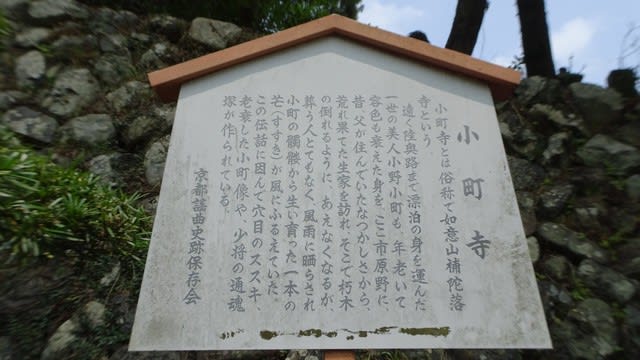 小町寺
小町寺とは俗称で如意山補陀落
寺という。
遠く陸奥路まで漂泊の身を運んだ
一世の美人小野小町も、年老いて
容色も衰えた身を、ここ市原野に、
昔父が住んでいたなつかしさから、
荒れ果てた生家を訪れ、そこで朽木
の倒れるように、あえなくなるが、
葬う人とてもなく、風雨に晒らされ
小町の髑髏から生い育った一本の
芒(すすき)が風にふるえていた。
この伝話に因んで穴目のススキ、
老衰した小町像や、少将の通魂
塚が作られている。
京都謡曲史跡保存会